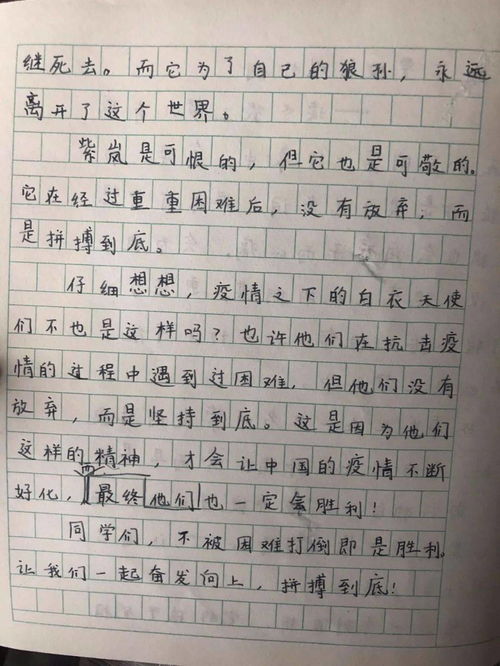 继死去。而它为了自己的狼孙，永远
离开了这个世界。
紫岚是可恨的，但它也是可敬的。
它在经过重重困难后，没有放弃，而
是拼搏到底。
仔细想想，疫情之下的白衣天使
们不也是这样吗？也许他们在抗击疫
情的过程中遇到过困难，但他们没有
放弃，而是坚持到底。这是因为他们
这样的精神，才会让中国的疫情不断
好化，而最终他们也一定会胜利！
同学们，不被困难打倒即是胜利。
让我们一起奋发向上，拼搏到底！